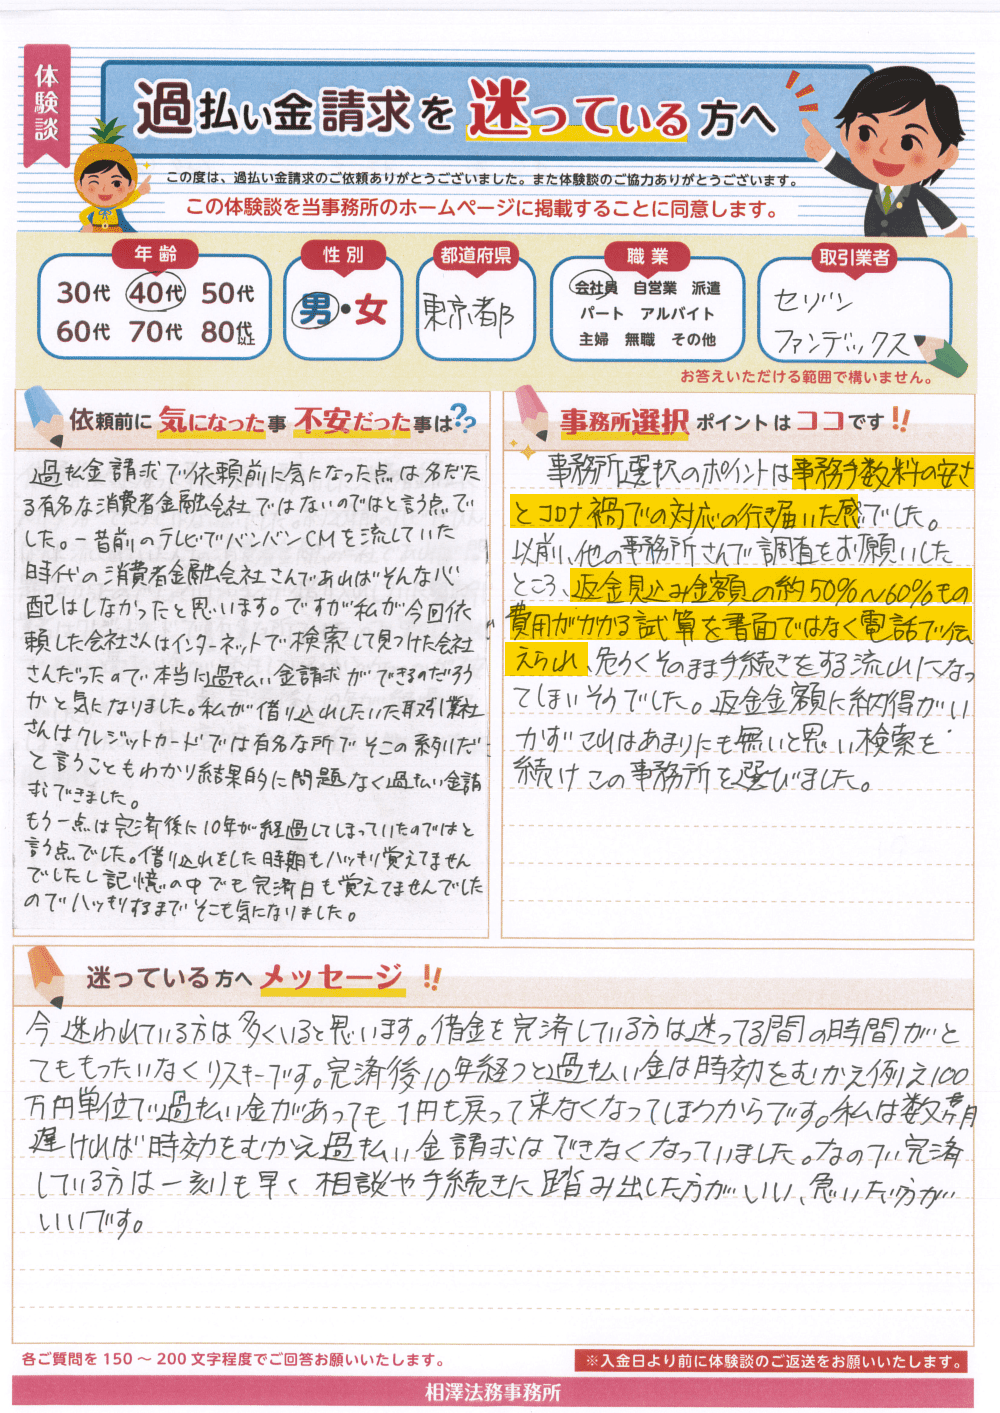 体験談
過払い金請求を迷っている方へ
この度は、過払い金請求のご依頼ありがとうございました。また体験談のご協力ありがとうございます。
この体験談を当事務所のホームページに掲載することに同意します。
年齢
30代 40代 50代
60代 70代 80代以上
性別
男・女
都道府県
東京都
職業
会社員 自営業 派遣
パート アルバイト
主婦 無職 その他
取引業者
セゾン
ファンデックス
お答えいただける範囲で構いません。
依頼前に気になった事 不安だった事は??
過払金請求で依頼前に気になった点は名だた
る有名な消費者金融会社ではないのではと言う点で
した。一昔前のテレビでバンバンCMを流していた
時代の消費者金融会社さんであればそんな心
配はしなかったと思います。ですが私が今回依
頼した会社さんはインターネットで検索して見つけた会社
さんだったので本当に過払い金請求ができるのだろう
かと気になりました。私が借り込れしたいた取引業社
さんはクレジットカードでは有名な所でそこの系列だ
と言うこともわかり結果的に問題なく過払い金請
求できました。
もう一点は完済後に10年が経過してしまっていたのではと
言う点でした。借り込れをした時期もハッキリ覚えてません
でしたし記憶の中でも完済日も覚えてませんでした
のでハッキリするまでそこも気になりました。
事務所選択ポイントはココです!!
事務所選択のポイントは事務手数料の安さ
とコロナ禍での対応の行き届いた感でした。
以前、他の事務所さんで調査をお願いした
ところ、返金見込み金額の約50%〜60%もの
費用がかかる試算を書面ではなく電話で伝
えられ、危うくそのまま手続きをする流れになっ
てしまいそうでした。返金金額に納得がい
かずこれはあまりにも無いと思い検索を
続けこの事務所を選びました。
迷っている方へメッセージ!!
今迷われている方は多くいると思います。借金を完済している方は迷ってる間の時間がと
てももったいなくリスキーです。完済後10年経つと過払い金は時効をむかえ例え100
万円単位で過払い金があっても1円も戻って来なくなってしまうからです。私は数ヶ月
遅ければ時効をむかえ過払い金請求はできなくなっていました。なので完済
している方は一刻も早く相談や手続きに踏み出した方がいい、急いだ方が
いいです。
各ご質問を150〜200文字程度でご回答お願いいたします。
※入金日より前に体験談のご返送をお願いいたします。
相澤法務事務所